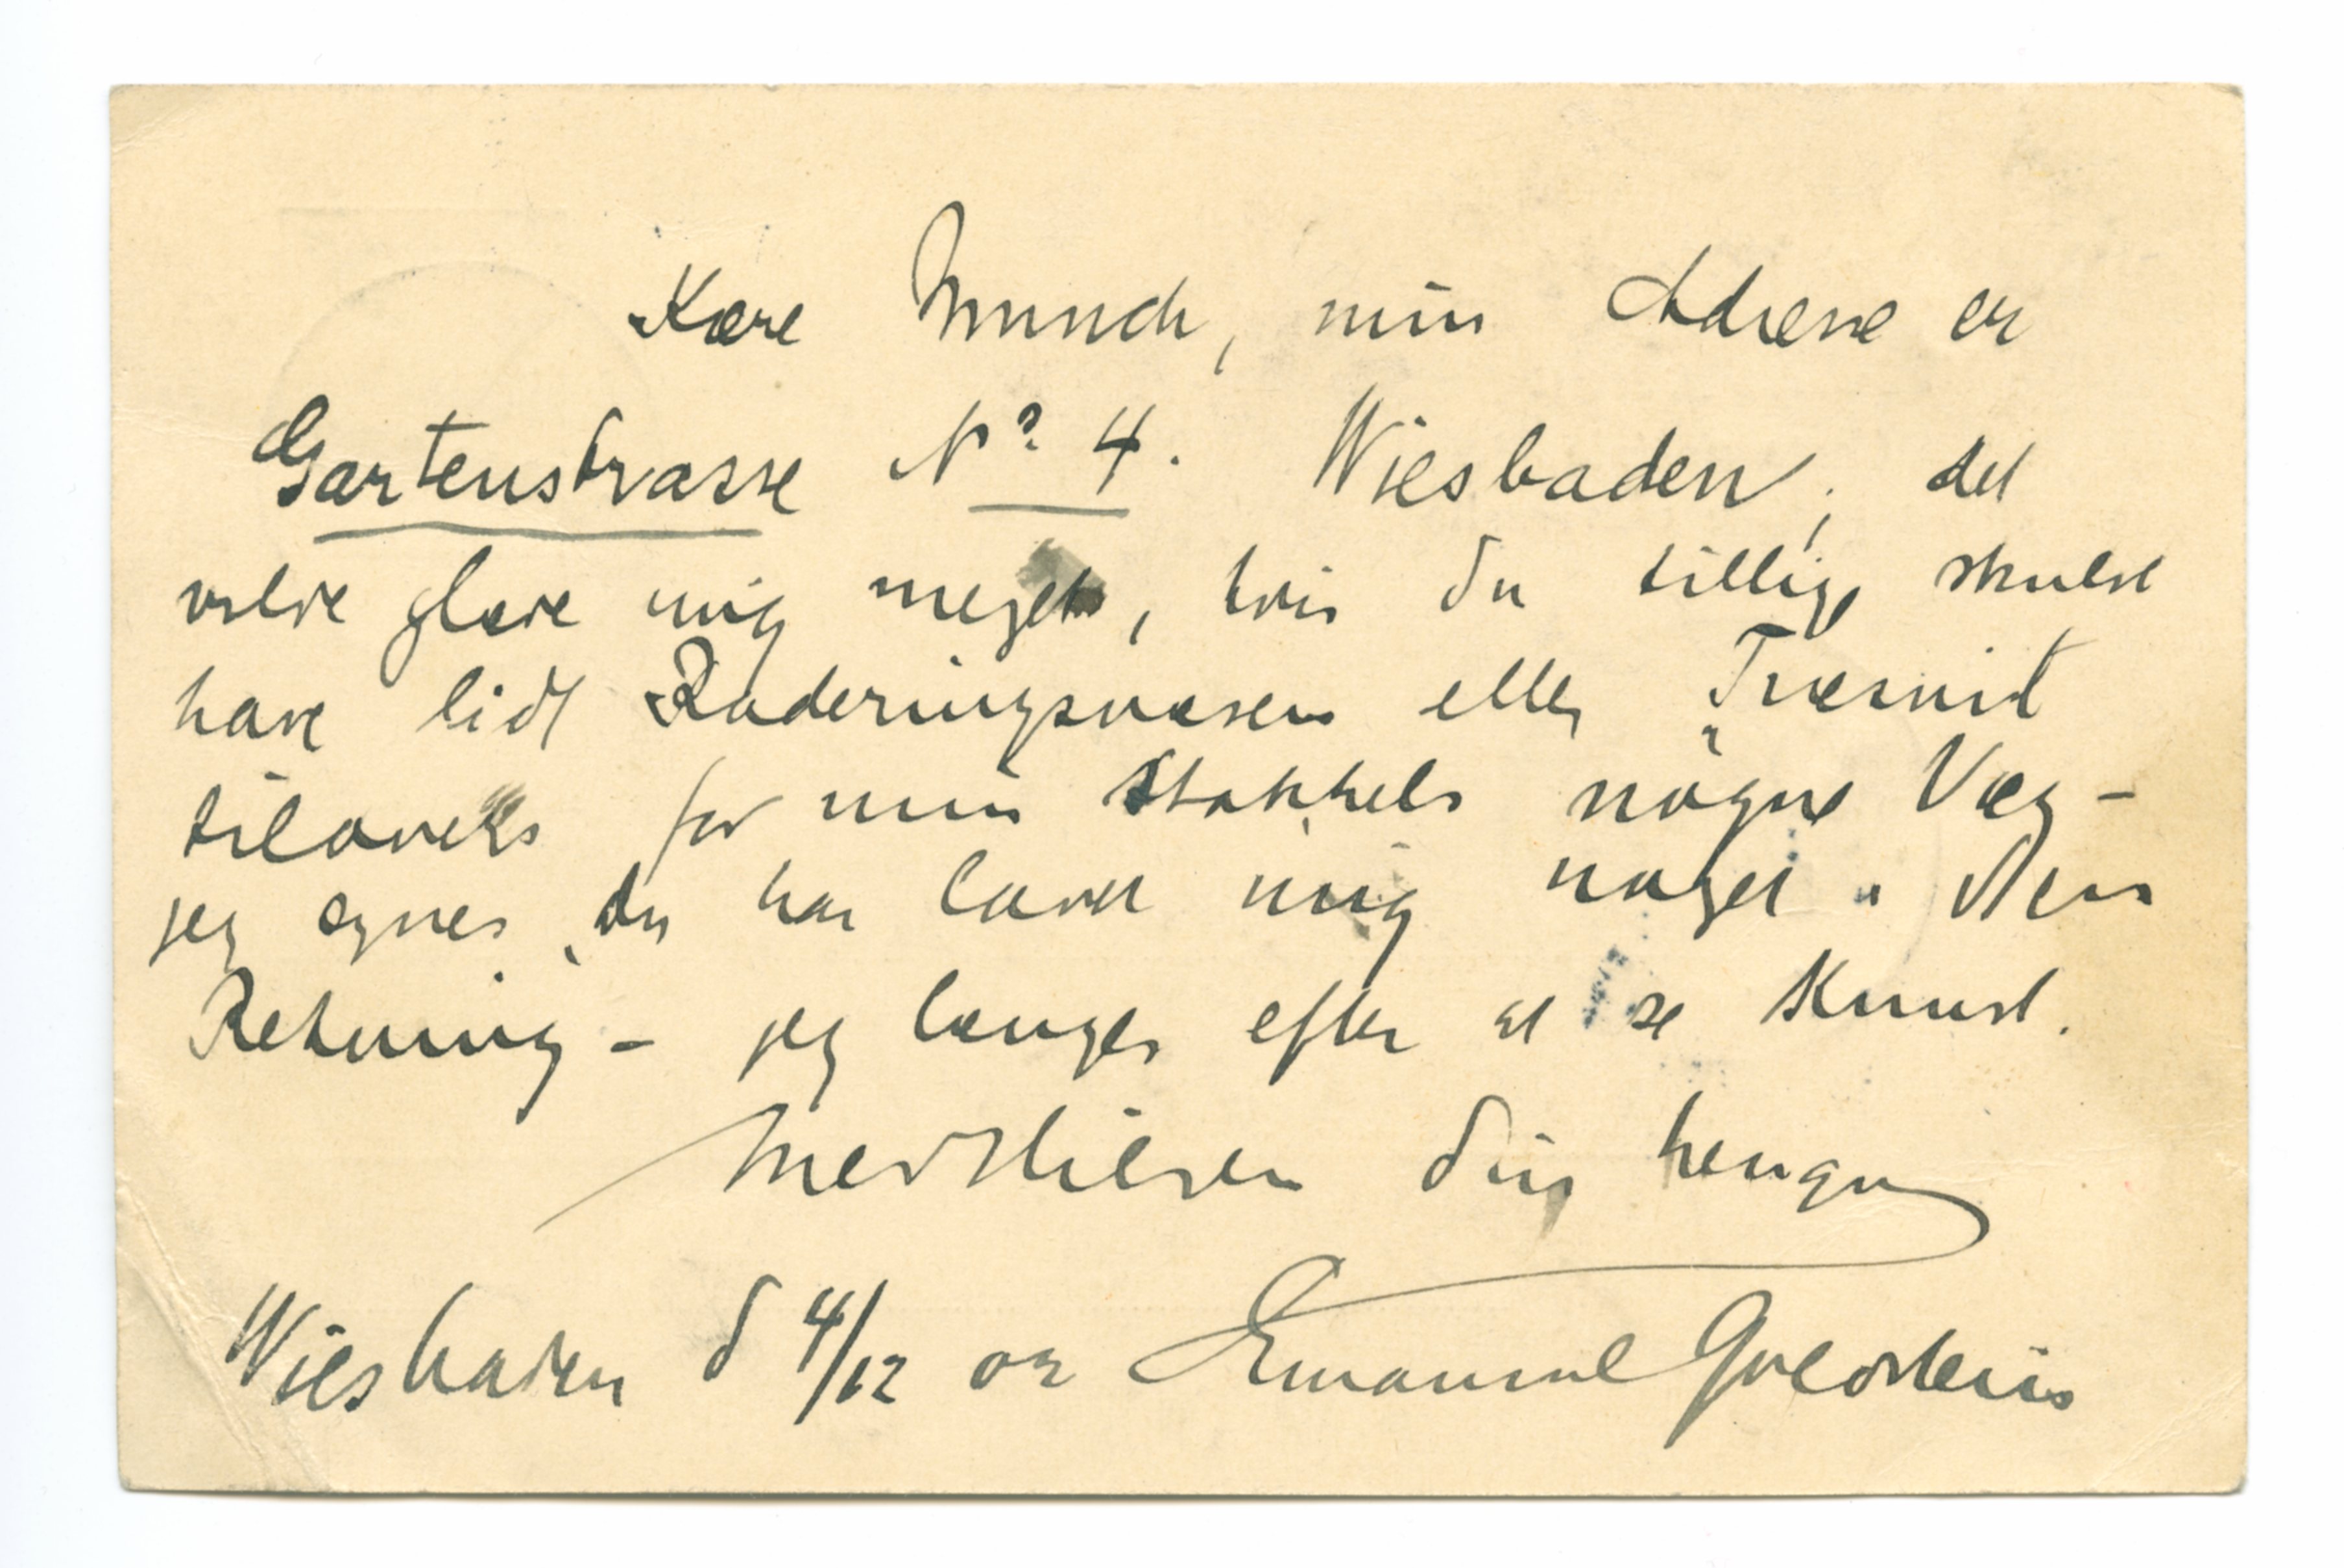 Kære Munch, min Adresse er
Gartenstrasse Nº 4. Wiesbaden; det
vilde glæde mig meget, hvis du tillige skulde
have lidt Raderingsvæsen eller Træsnit
tilovers for min stakkels nøgne Væg –
jeg synes, du har lovet mig noget i den
Retning – jeg længes efter at se Kunst.
Med Hilsen din hengivne
Wiesbaden d 4/12 02 Emanuel Goldstein